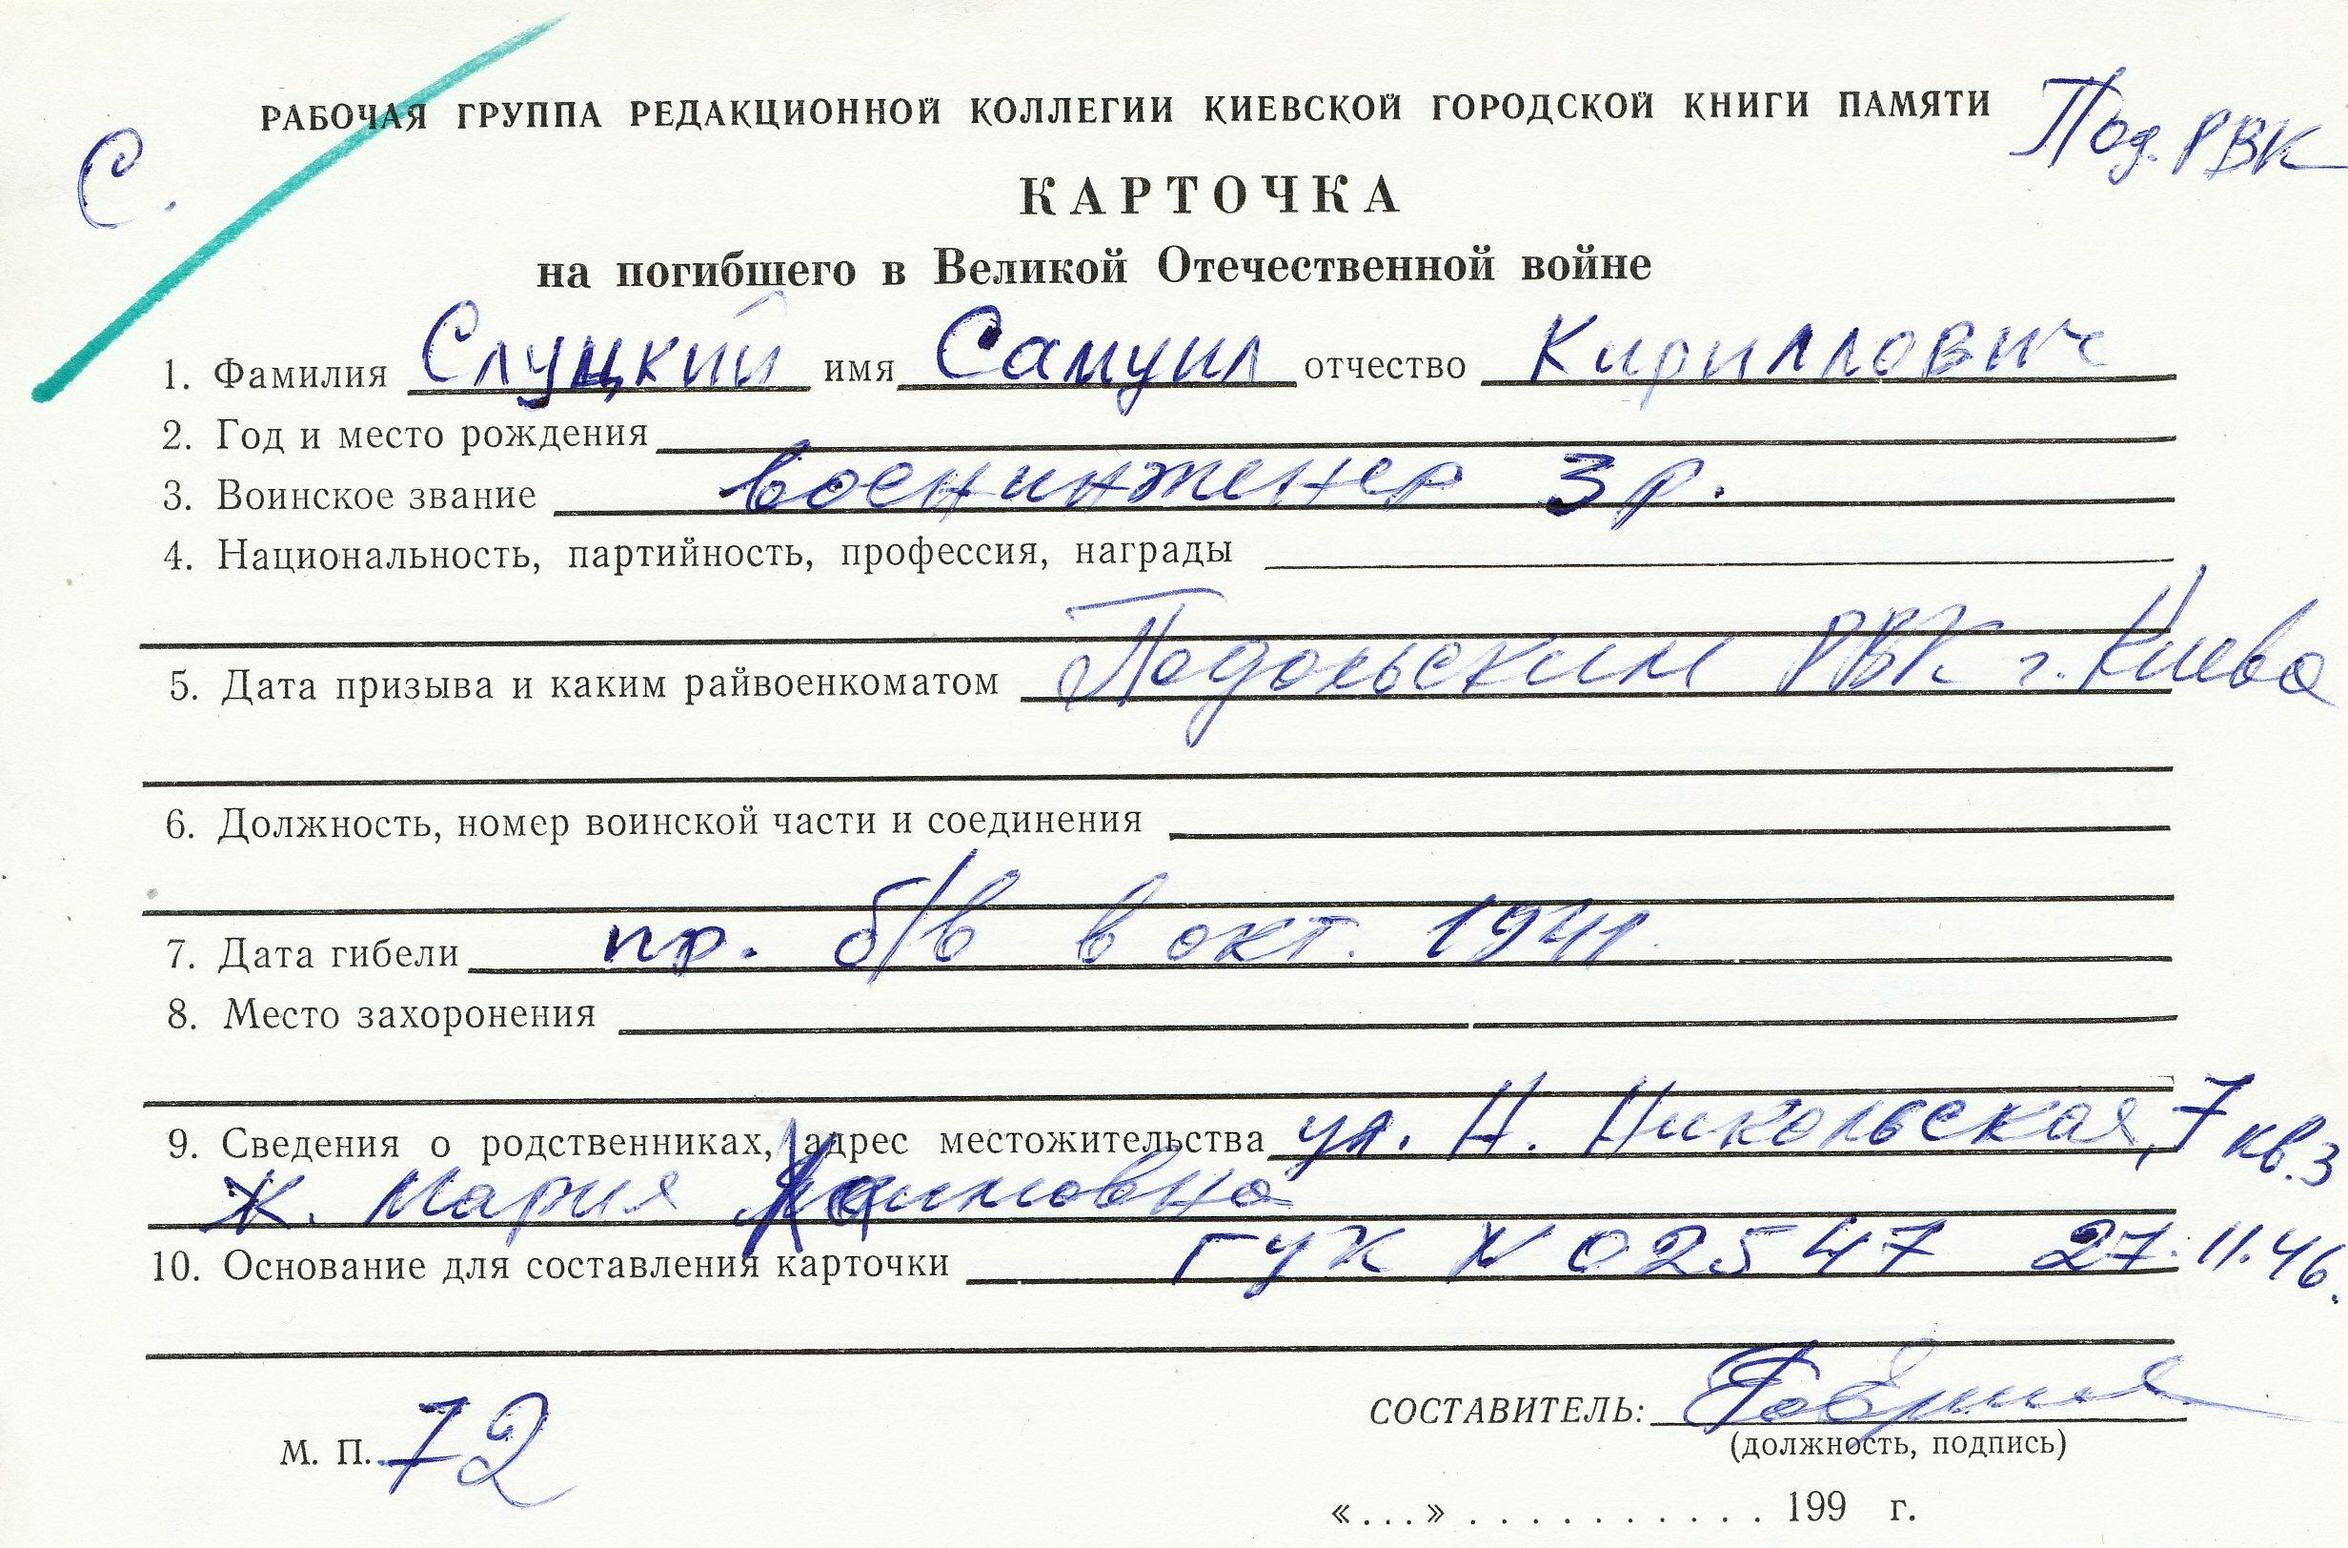 РАБОЧАЯ ГРУППА РЕДАКЦИОННОЙ КОЛЛЕГИИ КИЕВСКОЙ ГОРОДСКОЙ КНИГИ ПАМЯТИ
Под. РВК
С.
КАРТОЧКА
на погибшего в Великой Отечественной войне
1. Фамилия Слуцкий имя Самуил отчество Кириллович
2. Год и место рождения
3. Воинское звание военинженер 3 р.
4. Национальность, партийность, профессия, награды
5. Дата призыва и каким райвоенкоматом Подольским РВК г. Киева
6. Должность, номер воинской части и соединения
7. Дата гибели пр. б/в в окт. 1941
8. Место захоронения
9. Сведения о родственниках, адрес местожительства ул. Н. Никольская, 7 кв. 3
ж. Мария
10. Основание для составления карточки ГУК N 02547 27.11.46.
СОСТАВИТЕЛЬ:
(должность, подпись)
М. П. 72
«...» . . . . . . . . . . . 199 г.